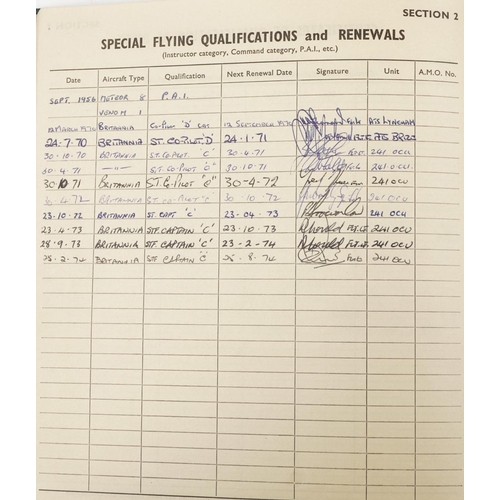 SECTION 2
SPECIAL FLYING QUALIFICATIONS and RENEWALS
(Instructor category, Command category, P.A.I., etc.)
Date Aircraft Type Qualification Next Renewal Date Signature Unit A.M.O. No.
SEPT. 1956 METEOR 8 P.A.I.
VENOM 1
12 MARCH 1970 BRITANNIA CO-PILOT 'D' CAT 12 SEPTEMBER 1970 LYNEHAM
24-7-70 BRITANNIA ST. CO-PILOT 'D' 24-1-71
30-10-70 BRITANNIA ST. CO-PILOT 'C' 30-4-71 241 OCU
30-4-71 —"— ST. CO-PILOT 'C' 30-10-71 241 OCU
30 10 71 BRITANNIA ST C-PILOT "C" 30-4-72 241 OCU
30-4-72 BRITANNIA ST CO-PILOT 'C' 30-10-72 241 OCU
23-10-72 BRITANNIA ST. CAPT 'C' 23-04-73 241 OCU
23-4-73 BRITANNIA STF. CAPTAIN 'C' 23-10-73 FLT. LT. 241 OCU
28-9-73 BRITANNIA STF CAPTAIN 'C' 23-2-74 FLT. LT. 241 OCU
28-2-74 BRITANNIA STF CAPTAIN 'C' 28-8-74 241 OCU